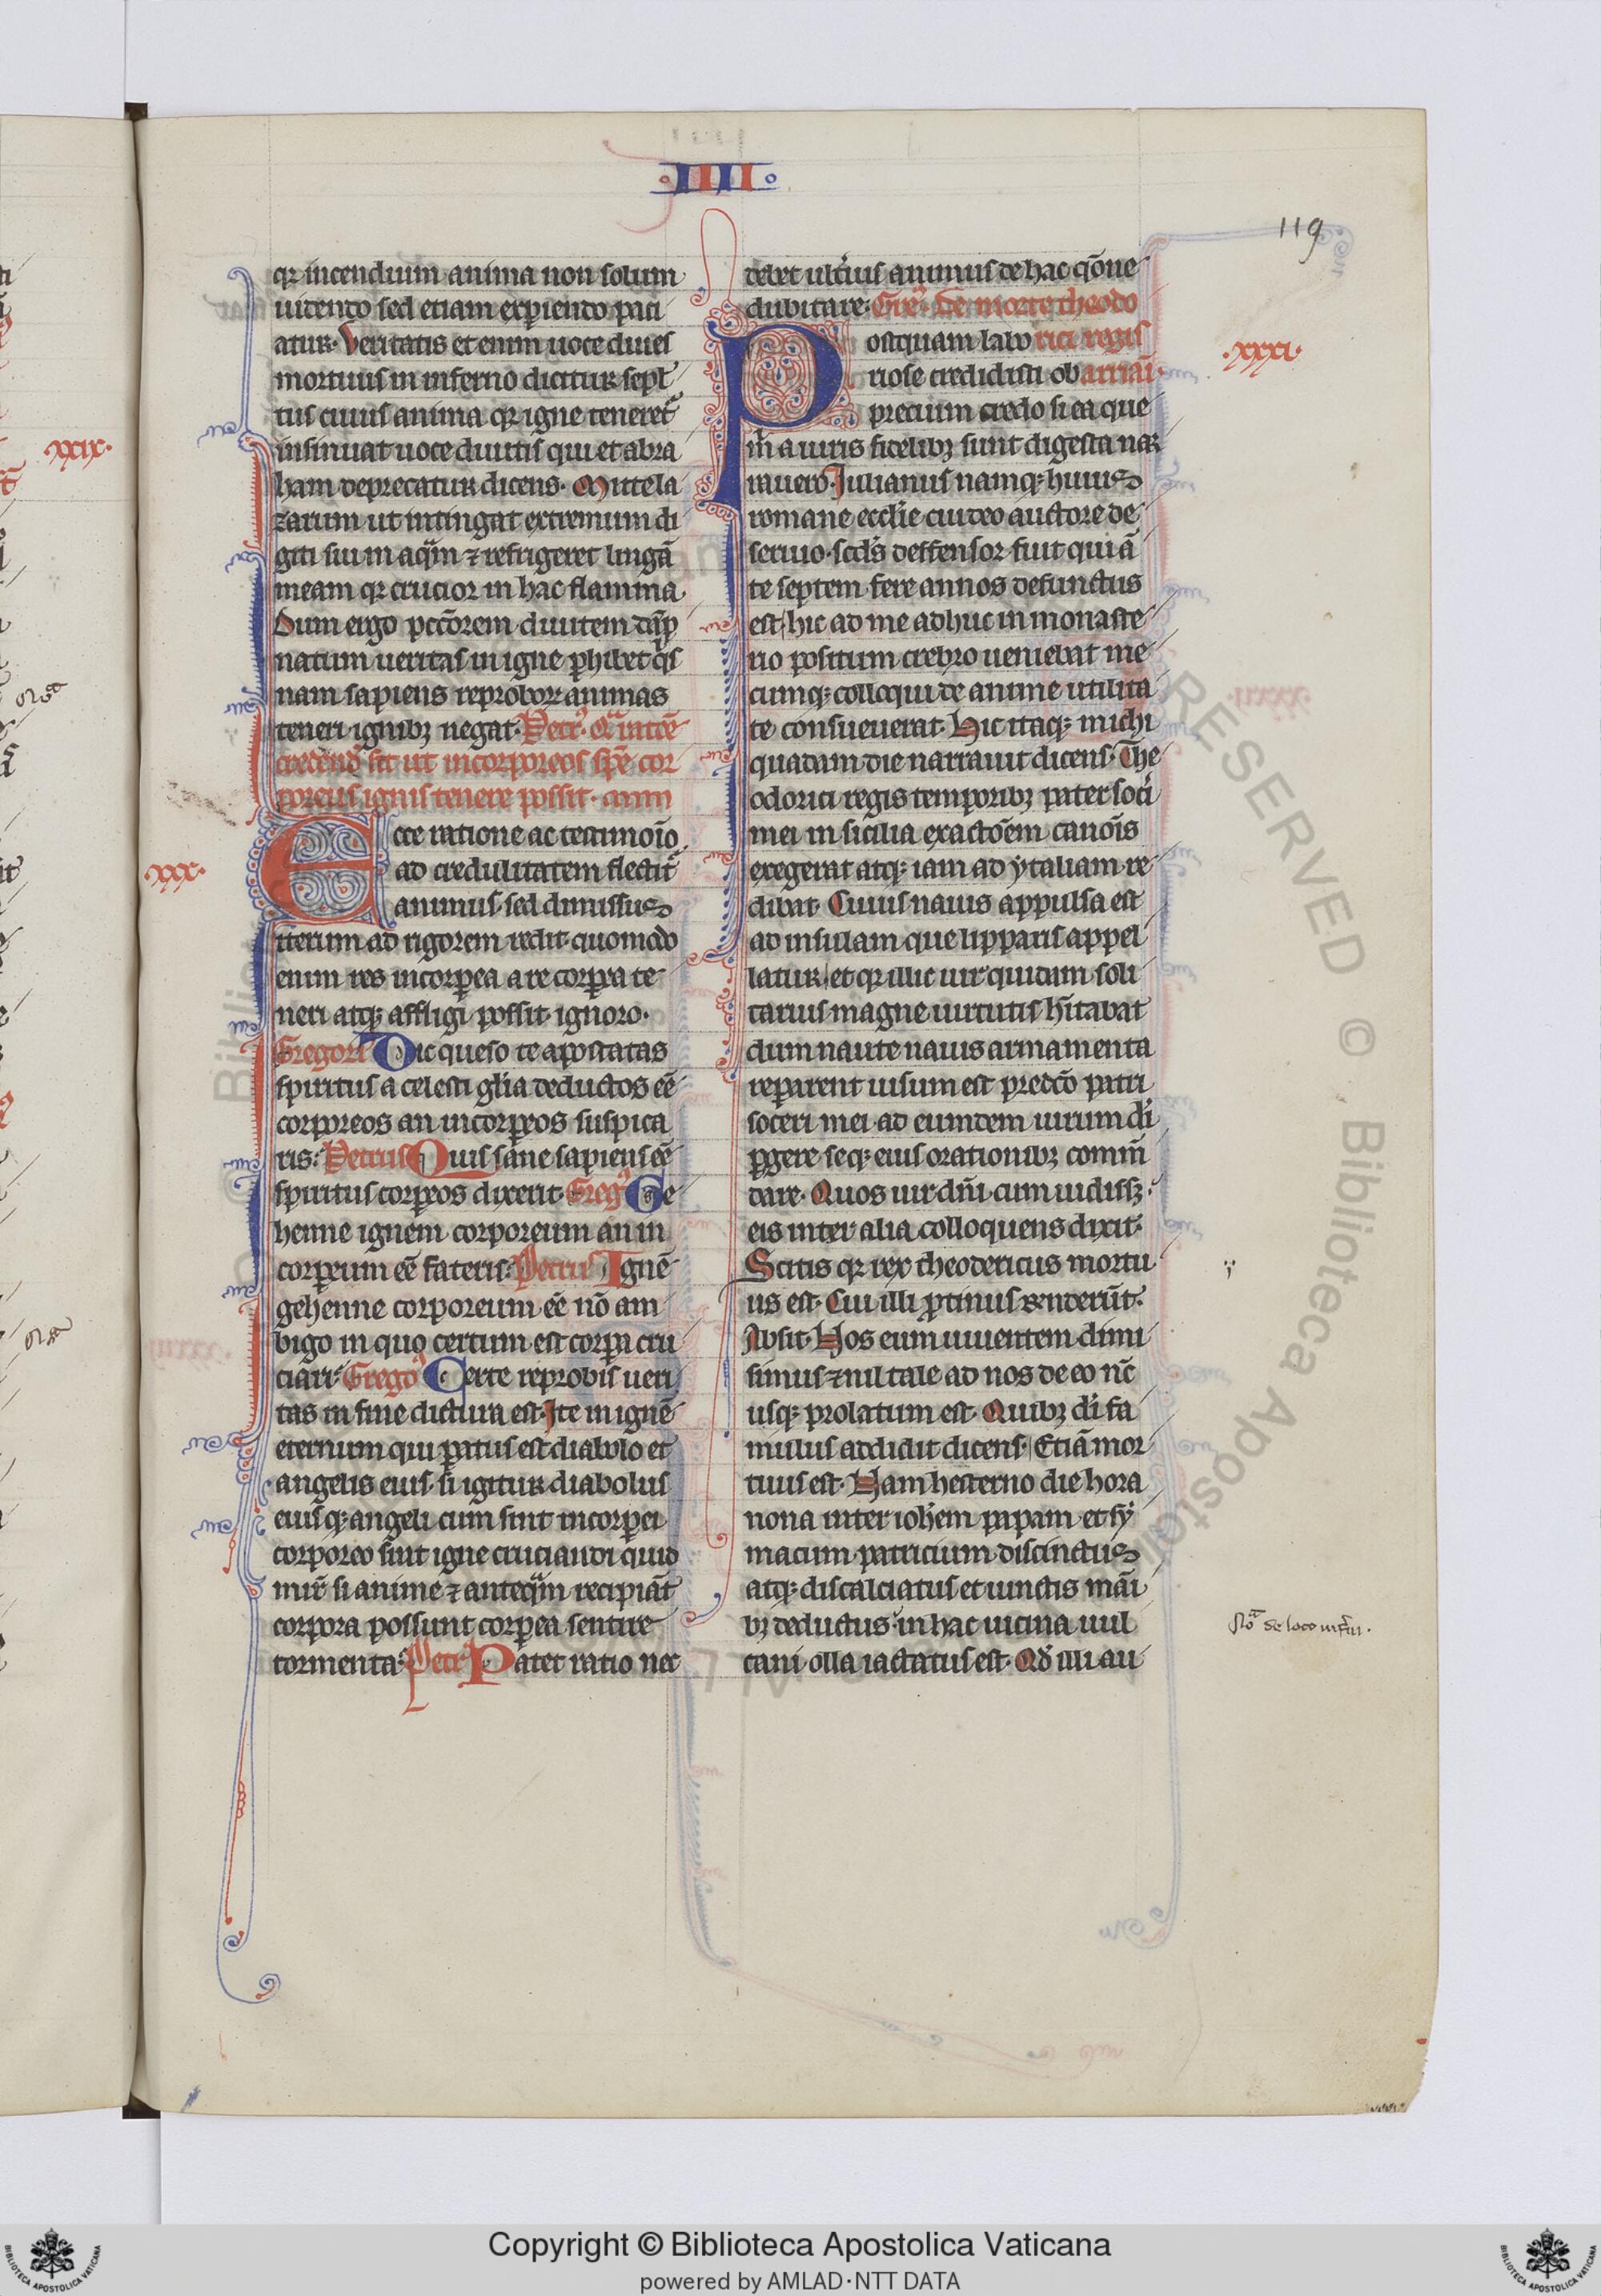 IIII
119
qꝛ incendium anima non solum
uidendo sed etiam experiendo paci
atur. Veritatis et enim uoce diues
mortuus in inferno dicitur sepl
tus cuius anima qꝛ igne teneret᷑
insinuat uoce diuitis qui et abra
ham deprecatur dicens. Mitte la
zarum ut intingat extremum di
giti sui in aqͣm ⁊ refrigeret linguã
meam qꝛ crucior in hac flamma
Dum ergo pctõrem diuitem dãp
natum ueritas in igne ꝑhibet qͥs
nam sapiens reproboꝝ animas
teneri ignibꝫ negat. Petr᷒. Qͣ ratõe
credend᷒ sit ut incorporeos sp̃c cor
poreus ignis tenere possit.
.xxx.
Ecce ratione ac testimoĩo
ad credulitatem flectit᷑
animus. sed dimissus
iterum ad rigorem redit. quomodo
enim res incorꝑea a re corꝑea te
neri atqꝫ affligi possit ignoro.
Gregori᷒ Dic queso te apostatas
spiritus a celesti glĩa deductos eẽ
corporeos an incorꝑeos suspica
ris. Petrus Quis sane sapiens eẽ
spiritus corꝑeos dixerit. Greg᷒ Ge
henne ignem corporeum an in
corꝑeum eẽ fateris. Petrus Ignẽ
gehenne corporeum eẽ nõ am
bigo in quo certum est corꝑa cru
ciari. Grego᷒ Certe reprobis ueri
tas in fine dictura est. Ite in ignẽ
eternum qui ꝑatus est diabolo et
angelis eius. si igitur diabolus
eiusqꝫ angeli cum sint incorꝑei
corporeo sint igne cruciandi quid
mir̃ si anime ⁊ anteqͣm recipiãt
corpora possunt corꝑea sentire
tormenta. Petr᷒ Patet ratio nec
debet ultͥius animus de hac qõne
dubitare. Gre᷒. De morte theodo
Postquam labo rici regis
riose credidisti ob arriãi.
.xxxi.
precium credo si ea que
m̃ a uiris fidelibꝫ sunt digesta nar
rauero. Iulianus namqꝫ huius
romane eccl̃ie cui deo auctore de
seruio. scd̃s deffensor fuit qui ã
te septem fere annos defunctus
est. hic ad me adhuc in monaste
rio positum crebro ueniebat me
cumqꝫ colloqui de anime utilita
te consueuerat. Hic itaqꝫ michi
quadam die narrauit dicens. The
odorici regis temporibꝫ pater socͥi
mei in sicilia exactõem canoĩs
exegerat atqꝫ iam ad ytaliam re
dibat. Cuius nauis appulsa est
ad insulam que lipparis appel
latur. et qꝛ illic uir quidam soli
tarius magne uirtutis hĩtabat
dum naute nauis armamenta
repararent uisum est predc̃o patri
soceri mei ad eumdem uirum dĩ
ꝑgere seqꝫ eius orationibꝫ comm̃
dare. Quos uir dñi cum uidissꝫ
eis inter alia colloquens dixit.
Scitis qꝛ rex theodericus mortu
us est. Cui illi ꝓtinus rñderũt.
Absit. Nos eum uiuentem dimi
simus ⁊ nil tale ad nos de eo nc̃
usqꝫ prolatum est. Quibꝫ dĩ fa
mulus addidit dicens. Etiã mor
tuus est. Nam hesterno die hora
nona inter ioħem papam et sỹ
macum patricium discinctus
atqꝫ discalciatus et uinctis mãi
bꝫ deductus in hac uicina uul
cani olla iactatus est. Qđ illi au
Noͭ de loco inf̃ni.
.xxix.
Copyright © Biblioteca Apostolica Vaticana
powered by AMLAD·NTT DATA